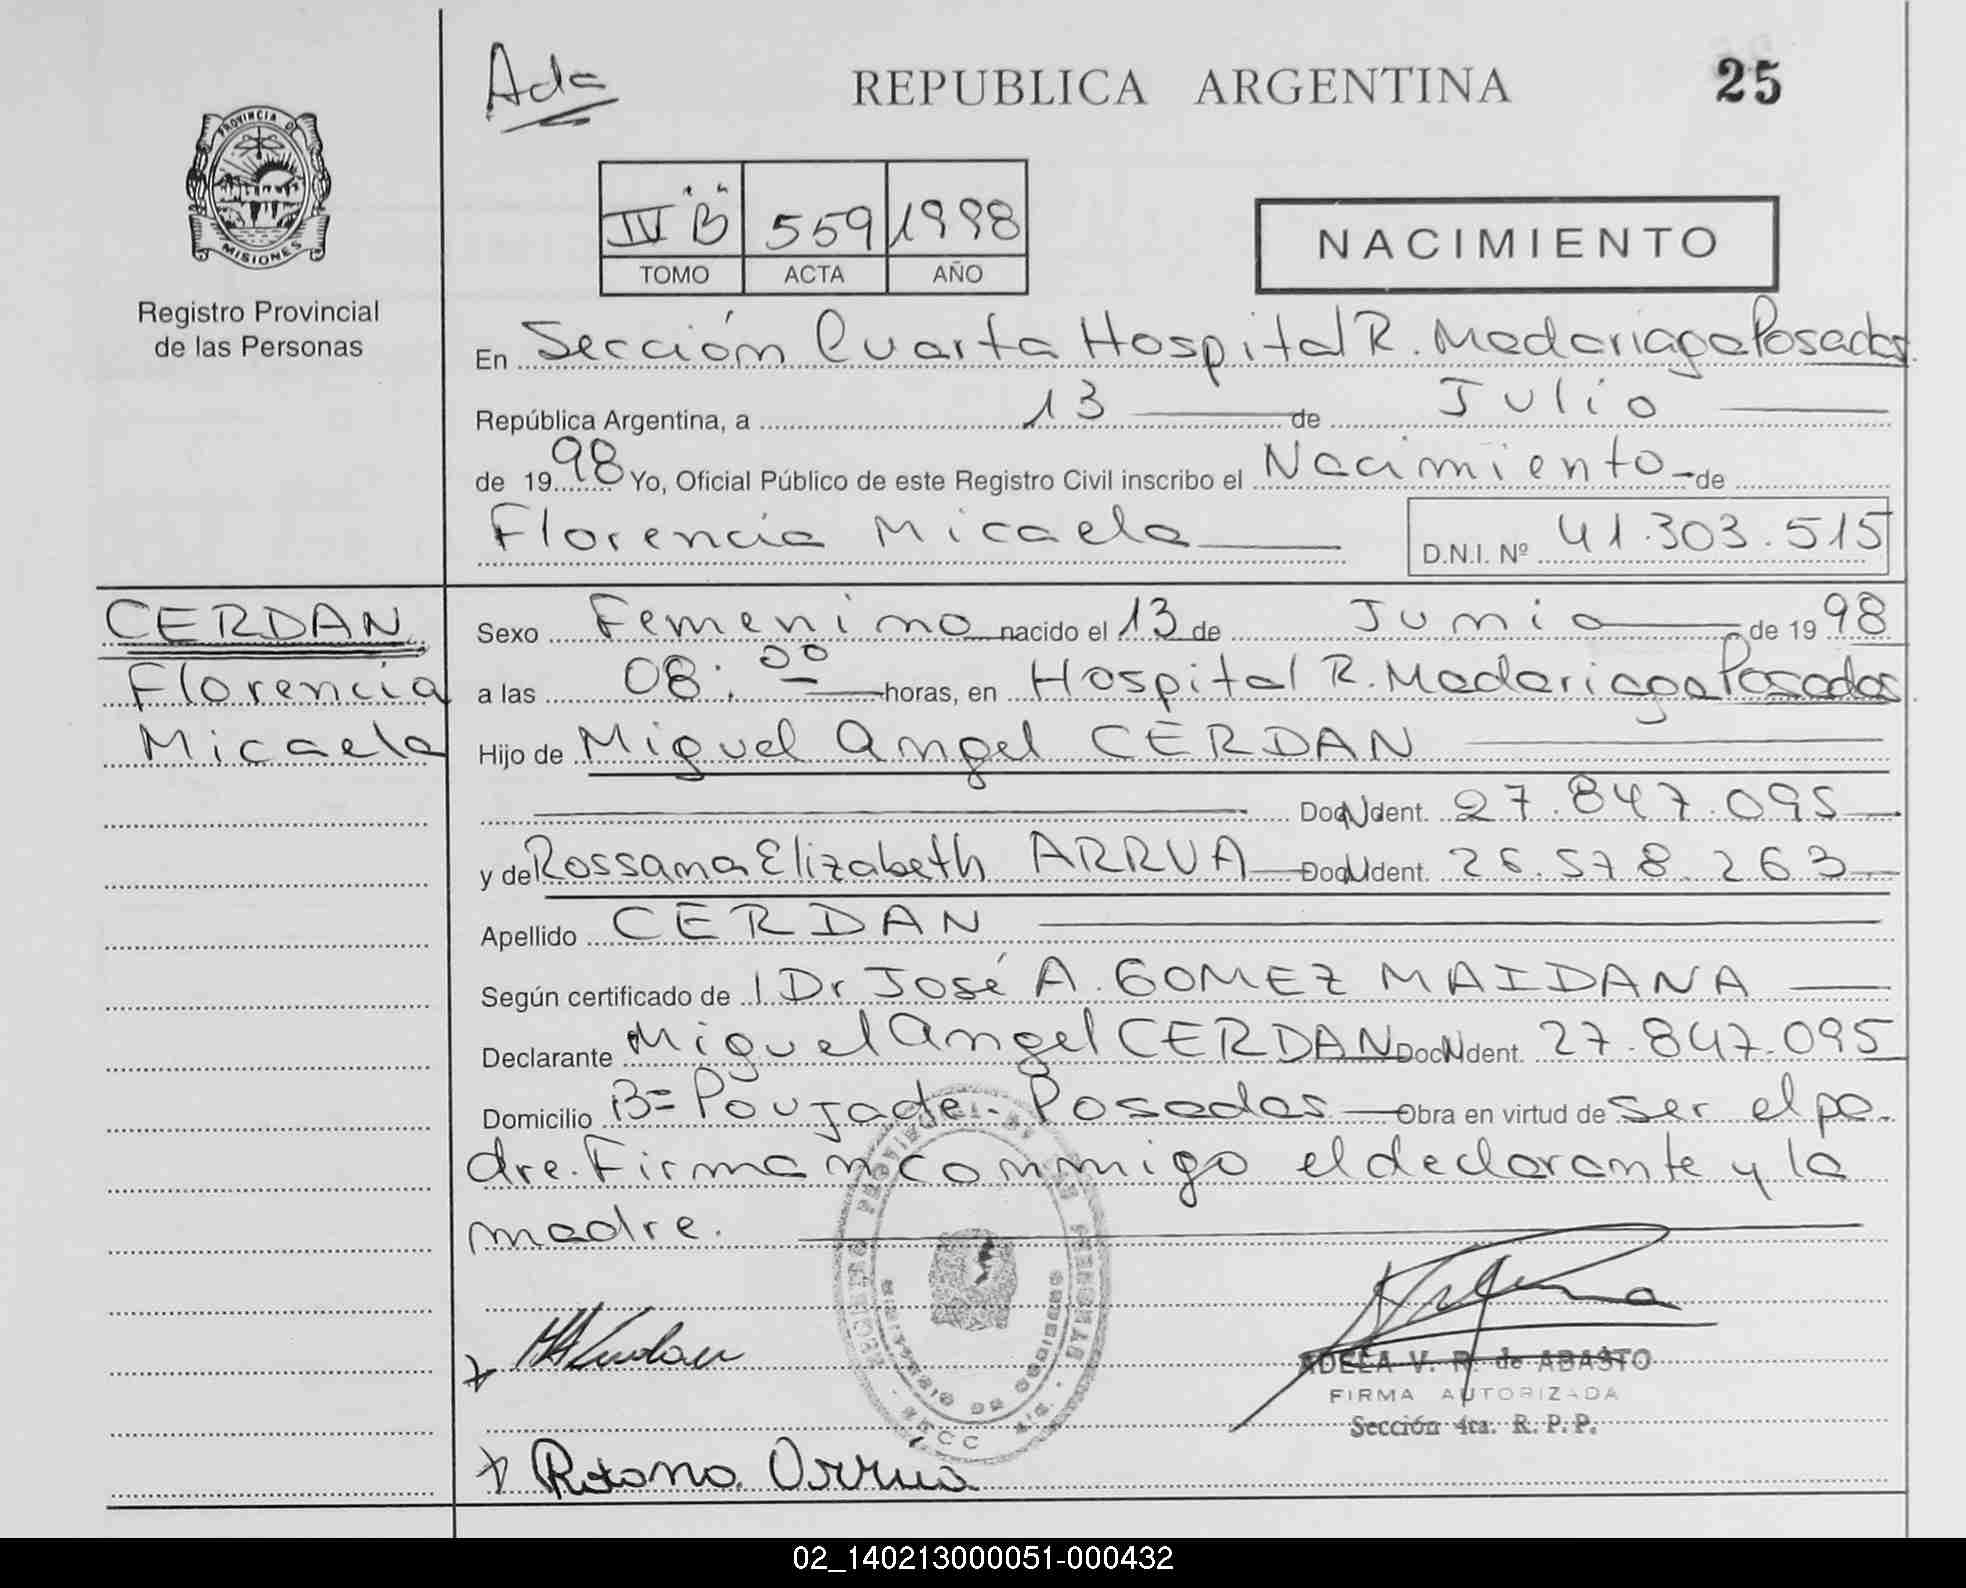 Ada
REPUBLICA ARGENTINA
25
PROVINCIA DE
MISIONES
Registro Provincial
de las Personas
IV "B" 559 1998
TOMO ACTA AÑO
NACIMIENTO
En Sección Cuarta Hospital R. Madariaga Posadas
República Argentina, a 13 de Julio
de 1998 Yo, Oficial Público de este Registro Civil inscribo el Nacimiento de
Florencia Micaela
D.N.I. Nº 41.303.515
CERDAN
Florencia
Micaela
Sexo Femenino nacido el 13 de Junio de 1998
a las 08:00 horas, en Hospital R. Madariaga Posadas
Hijo de Miguel Angel CERDAN
Doc. N Ident. 27.847.095
y de Rossana Elizabeth ARRUA Doc. N Ident. 26.578.263
Apellido CERDAN
Según certificado de l Dr José A. GOMEZ MAIDANA
Declarante Miguel Angel CERDAN Doc. N Ident. 27.847.095
Domicilio Bº Poujade - Posadas Obra en virtud de ser el pa-
dre. Firman conmigo el declarante y la
madre.
ADELA V. R. de ABASTO
FIRMA AUTORIZADA
Sección 4ta. R. P. P.
Arrúa
02_140213000051-000432